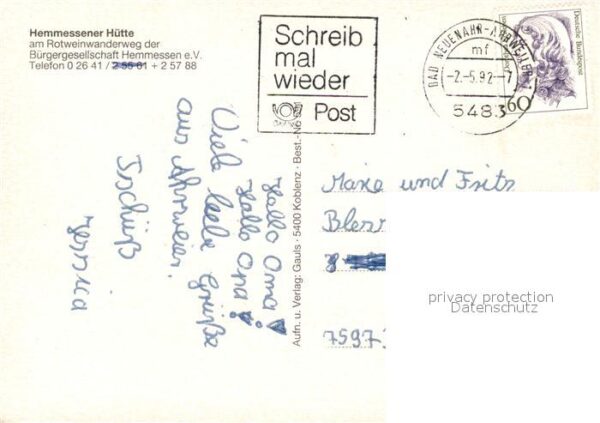 Hemmessener Hütte
am Rotweinwanderweg der
Bürgergesellschaft Hemmessen e.V.
Telefon 0 26 41 / 2 55 61 + 2 57 88
Schreib
mal
wieder
Post
BAD NEUENAHR-AHRWEILER 1
mf
-2.-5.92.-7
5483
Deutsche Bundespost
60
Hallo Oma!
Hallo Opa!
Viele liebe Grüße
aus Ahrweiler.
Tschüß
Aufn. u. Verlag: Gauls · 5400 Koblenz · Best.-No
und Fritz
7597
privacy protection
Datenschutz